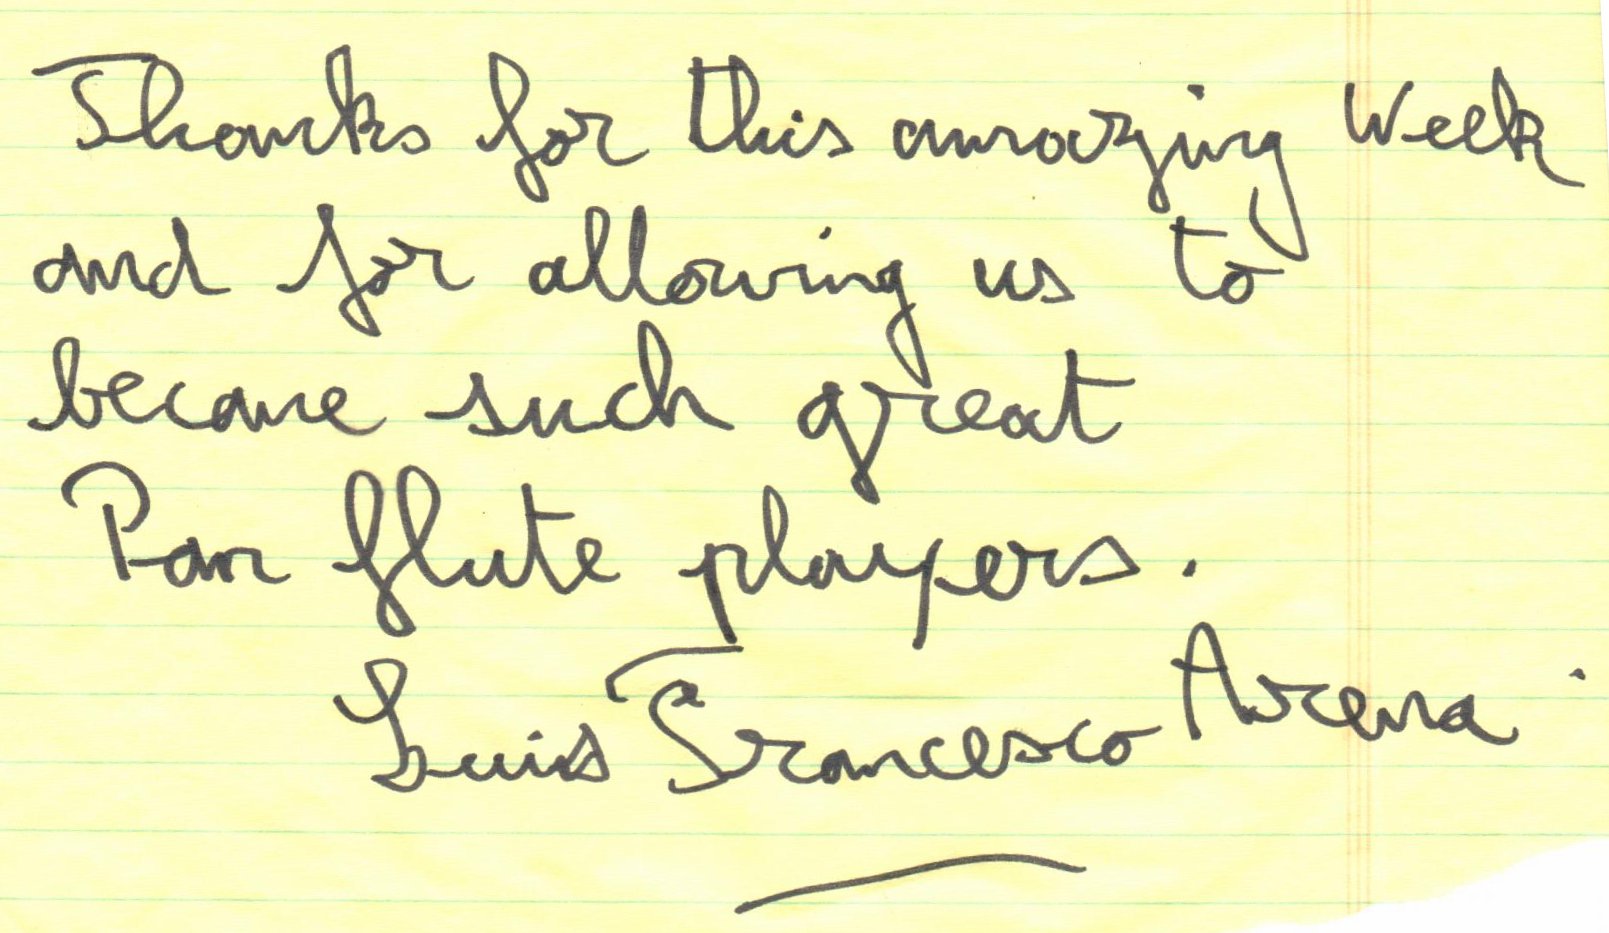 Thanks for this amazing Week
and for allowing us to
became such great
Pan flute players.
Luis Francesco Arena